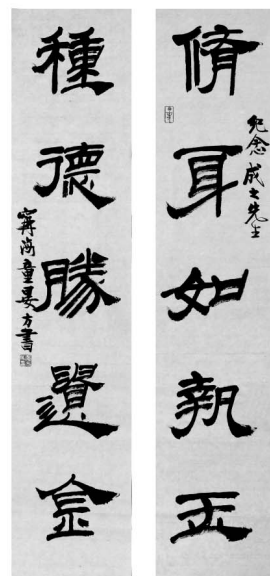 脩身如執玉
紀念成之先生
種德勝遺金
寧海童晏方書